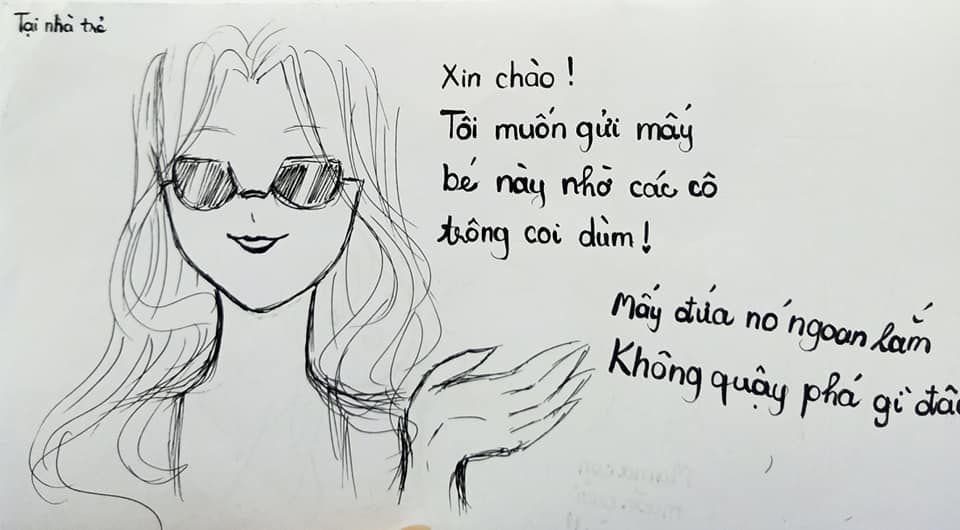 Tại nhà trẻ
Xin chào !
Tôi muốn gửi mấy
bé này nhờ các cô
trông coi dùm !
Mấy đứa nó ngoan lắm
Không quậy phá gì đâu